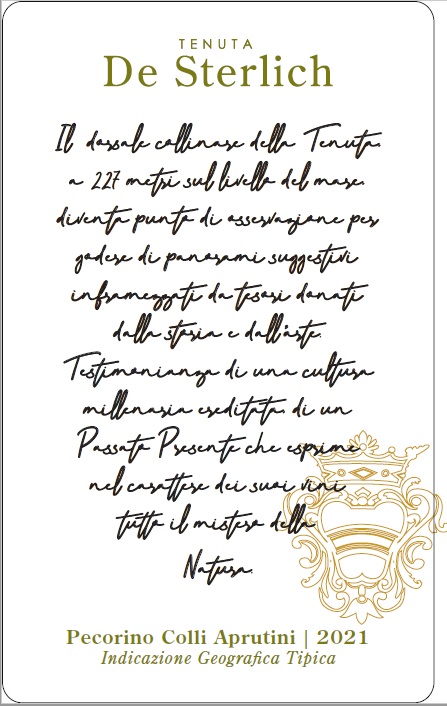 TENUTA
De Sterlich
Il dorsale collinare della Tenuta,
a 227 metri sul livello del mare,
diventa punto di osservazione per
godere di panorami suggestivi
inframezzati da tesori donati
dalla storia e dall'arte.
Testimonianza di una cultura
millenaria ereditata, di un
Passato Presente che esprime
nel carattere dei suoi vini
tutto il mistero della
Natura.
Pecorino Colli Aprutini | 2021
Indicazione Geografica Tipica